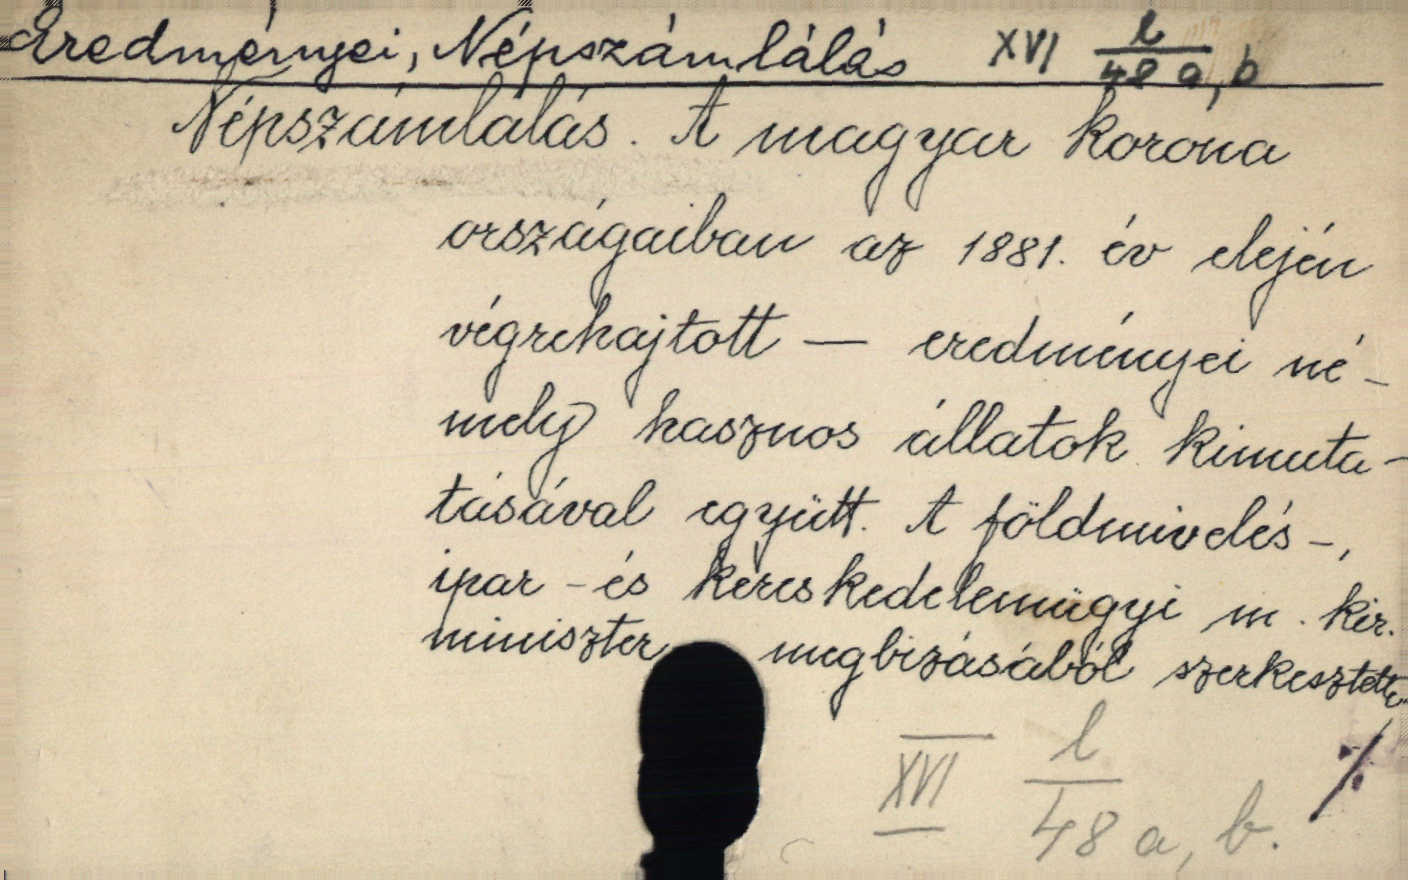 Eredményei, Népszámlálás XVI l/48 a, b
Népszámlálás. A magyar korona
országaiban az 1881. év elején
végrehajtott — eredményei né-
mely hasznos állatok kimuta-
tásával együtt. A földmivelés-,
ipar-és kereskedelemügyi m. kir.
miniszter megbizásából szerkesztette
XVI l/48 a, b.
./.